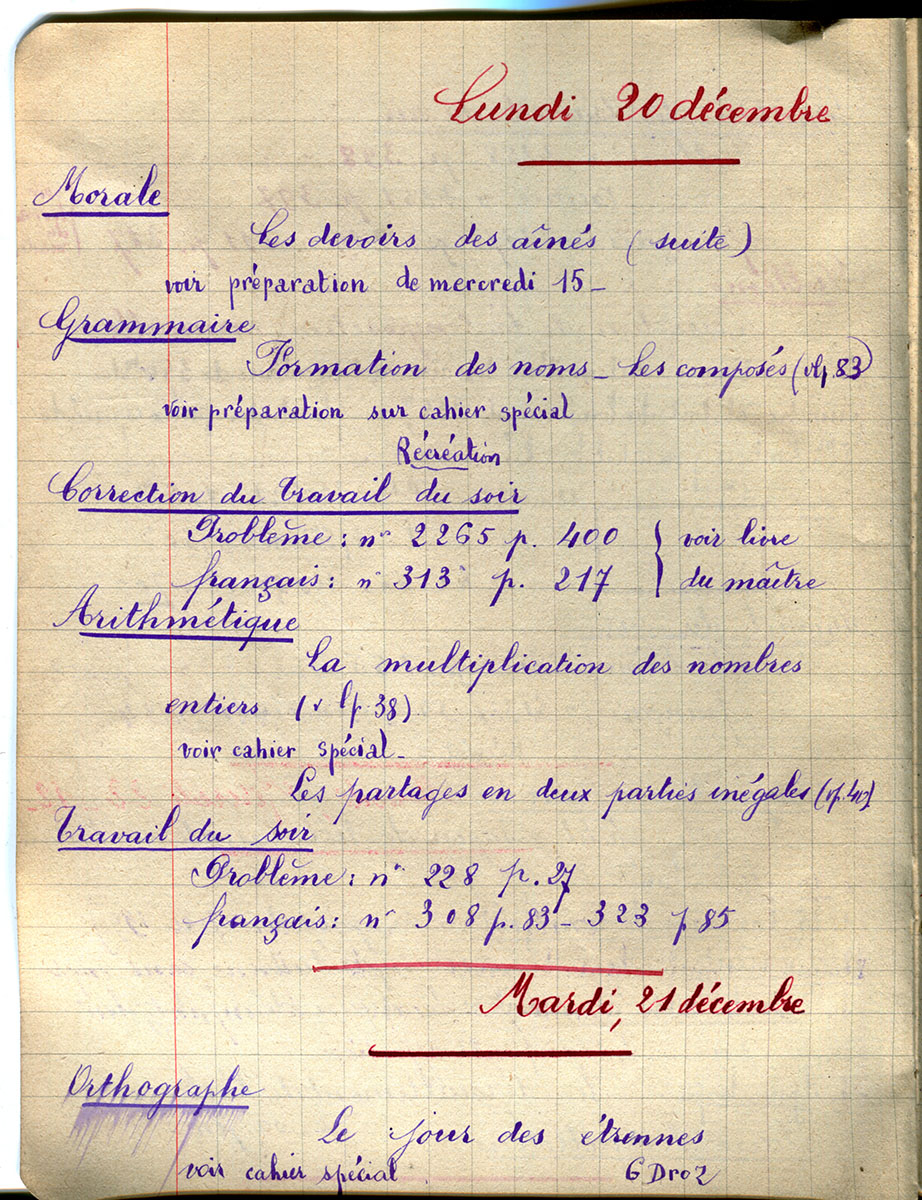 Lundi 20 décembre
Morale
Les devoirs des aînés (suite)
voir préparation de mercredi 15_
Grammaire
Formation des noms_ Les composés (vlp 83)
voir préparation sur cahier spécial
Récréation
Correction du travail du soir
Problème : n° 2265 p. 400 } voir livre
français : n° 313 p. 217 } du maître
Arithmétique
La multiplication des nombres
entiers (v l p 38)
voir cahier spécial_
Les partages en deux parties inégales (vp. 40)
Travail du soir
Problème : n° 228 p. 27
français : n° 308 p. 83 - 323 p 85
Mardi, 21 décembre
Orthographe
Le jour des étrennes
voir cahier spécial G Droz